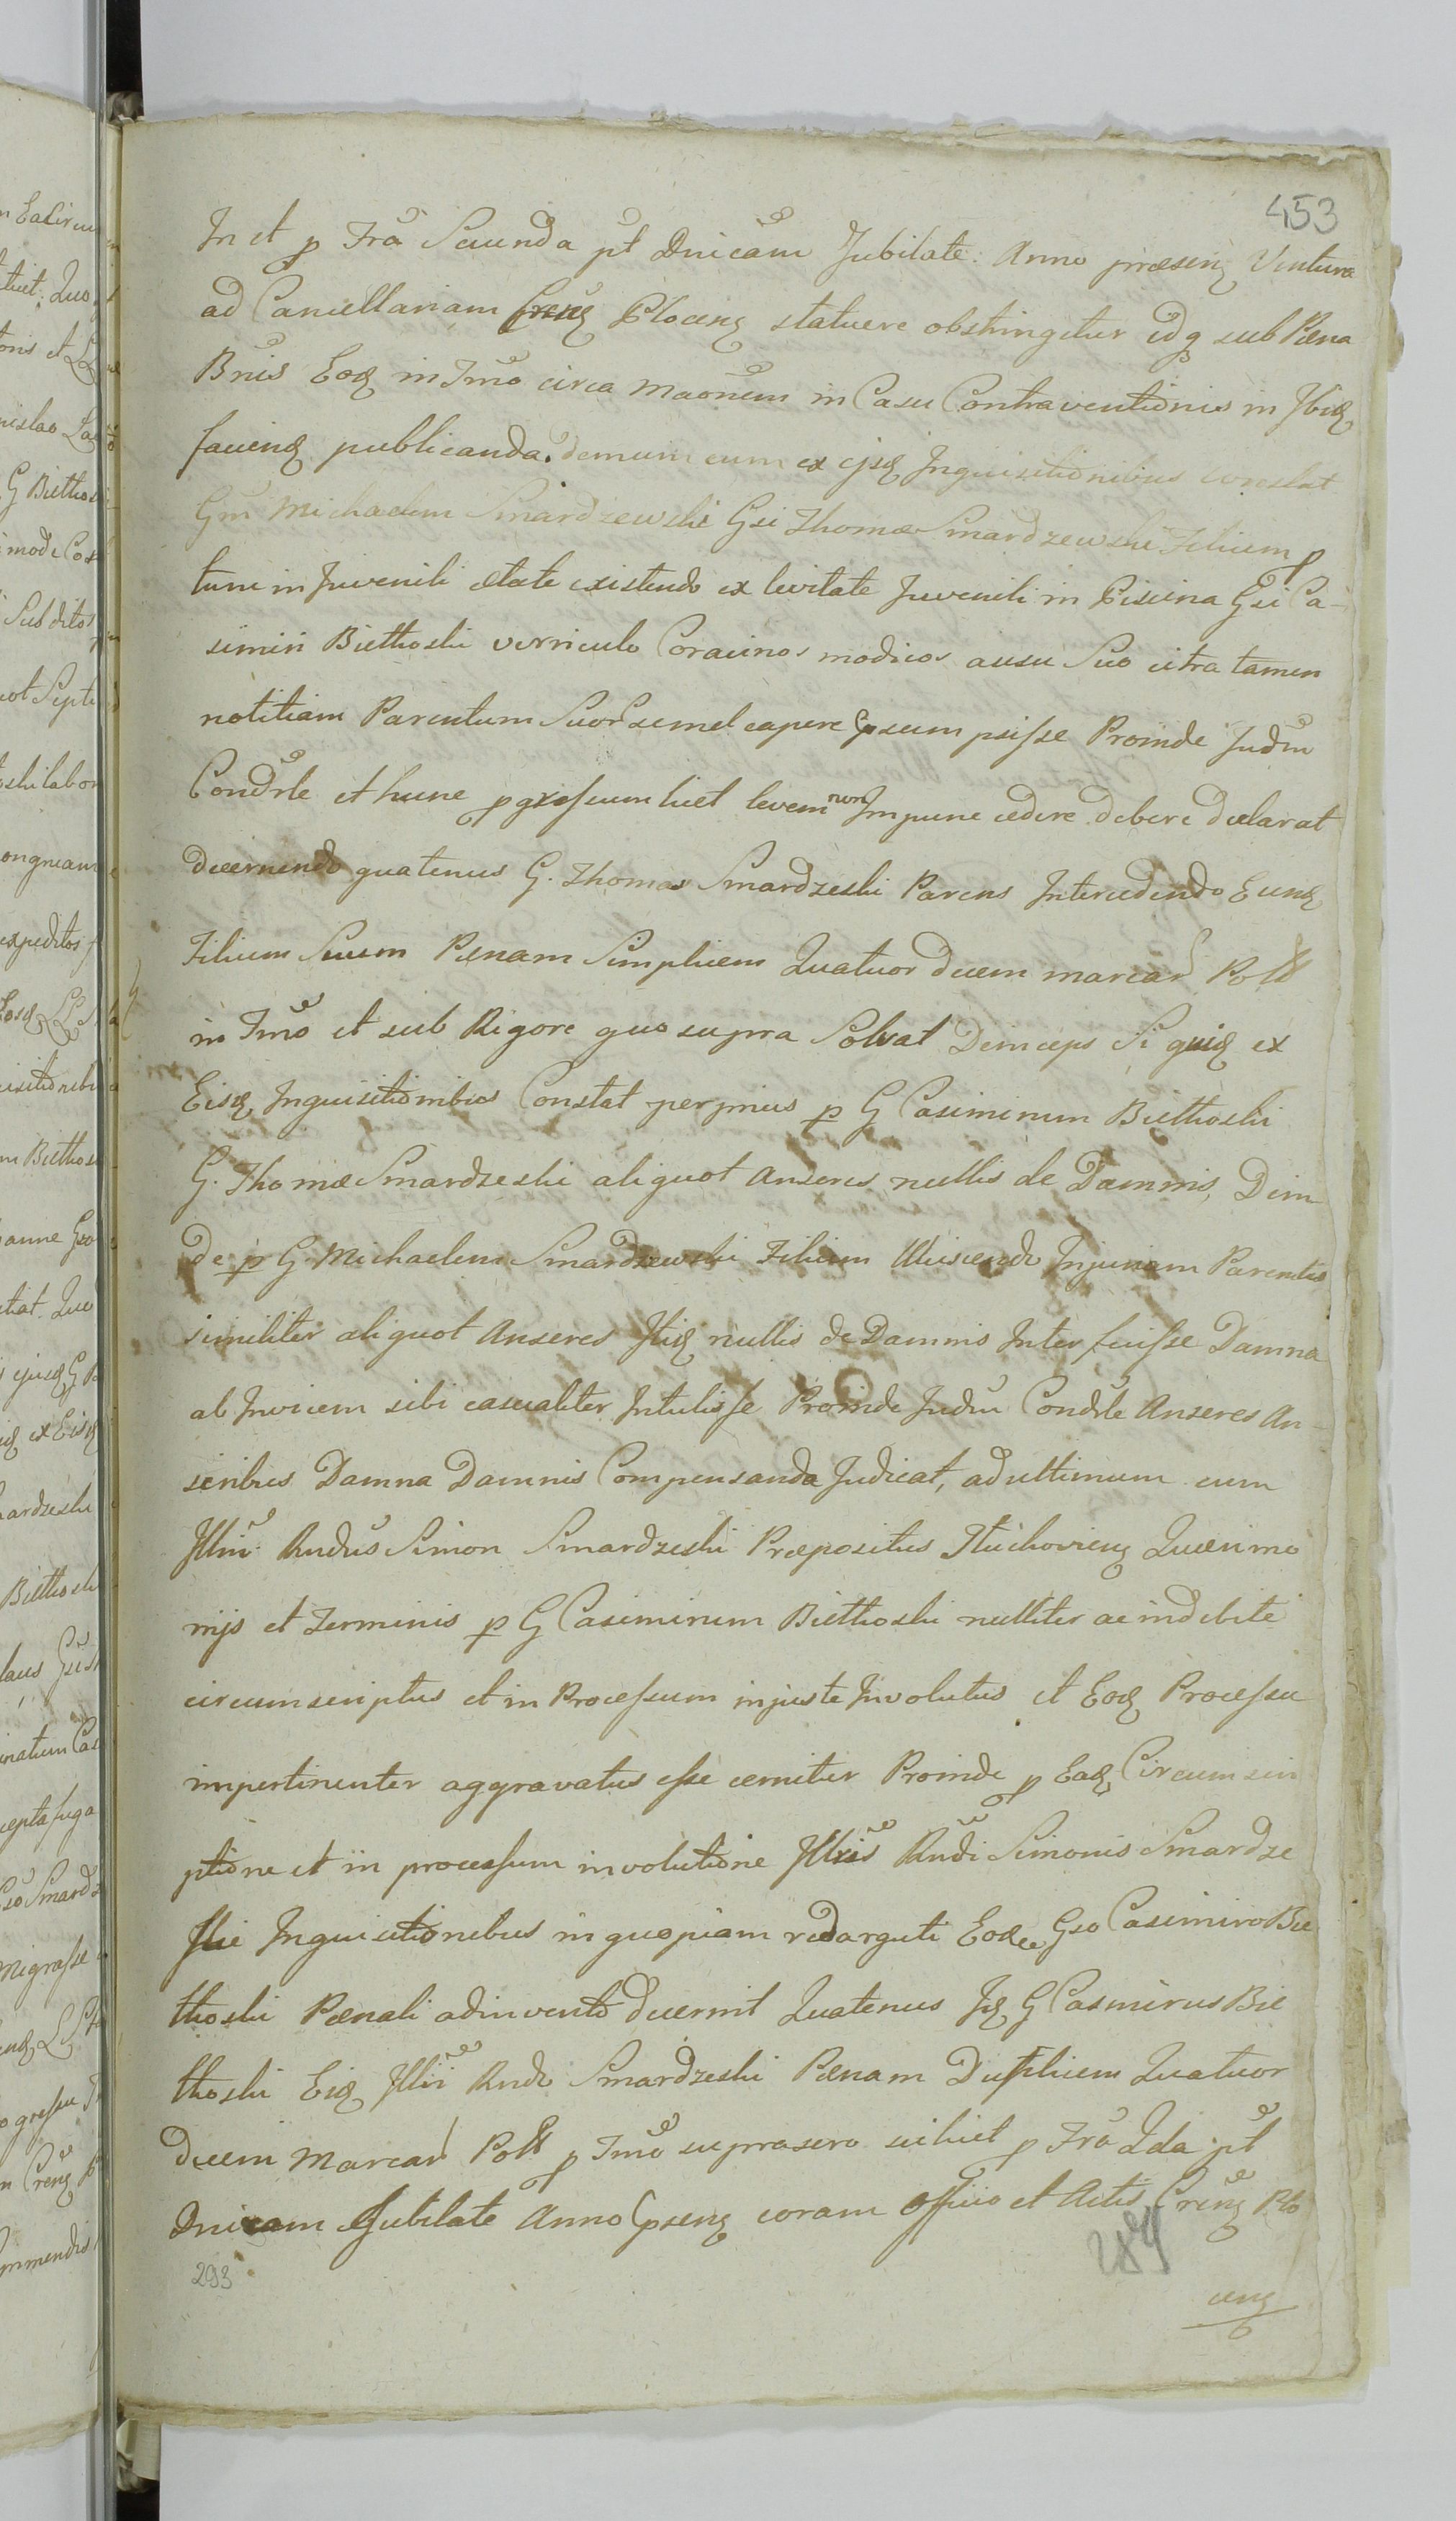 453
In et p Fra Secunda pt Dnicam Jubilate Anno præsenq Ventura
ad Cancellariam Crenq Plocenq statuere obstringetur idq sub Pæna
Bnis Eoq in Tmo circa maonem in Casu Contraventionis in Ibiq
faciend publicanda. demum cum ex ijsq Inquisitionibus constat
Gm Michaelem Smardzewski Gsi Thomæ Smardzewski Filium p
tunc in Juvenili ætate existendo ex levitate Juvenili in Piscina Gsi Ca-
simiri Bielkoski verriculo Coracinos modicos ausu Suo citra tamen
notitiam Parentum Suor semel capere psumpsisse Proinde Judm
Condrle et hunc pgressum licet levem non Impune cedere debere declarat
decernendo quatenus G. Thomas Smardzeski Parens Intercedendo Eunq
Filium Suum Pænam Simplicem Quatuor decem marcar Poll
in Tmo et sub Rigore quo supra Solvat Deinceps Si quiq ex
Eisq Inquisitionibus Constat perprius p G Casimirum Bielkoski
G. Thomæ Smardzeski aliquot anseres nullis de Damnis, Dein
de p G Michaelem Smardzewski Filium Ulciscendo Injuriam Parentis
similiter aliquot Anseres Itiq nullis de Damnis Interfuisse Damna
ab Invicem sibi casualiter Intulisse Proinde Judm Condrle Anseres An-
seribus Damna Damnis Compensanda Judicat, ad ultimum cum
Illm Rndus Simon Smardzeski Præpositus Tluchovienq Quærimo
nijs et Terminis p G Casimirum Bielkoski nulliter ac indebite
circumscriptus et in Processum injuste Involutus et Eoq Processu
impertinenter aggravatus esse cernitur Proinde p Eaq Circumscri
ptione et in processum involutione Illris Rndi Simonis Smardze
ski Inquisitionibus in quopiam redarguti Eodq Gso Casimiro Bie
lkoski Pænali adinvento decernit Quatenus Iq G Casimirus Bie
lkoski Eiq Illri Rndo Smardzeski Pænam Duplicem Quatuor
decem Marcar Poll p Tmo suprascro scilicet p Fra 2da pt
Dnicam Jubilate Anno psenq coram Officio et Actis Crenq Plo
293
289
cenq